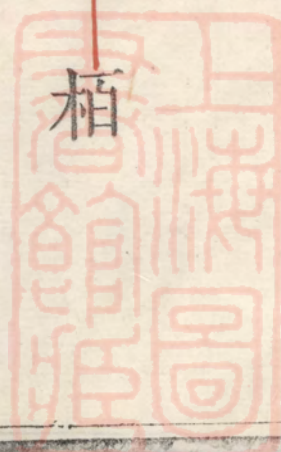 栢
上海圖
書館藏